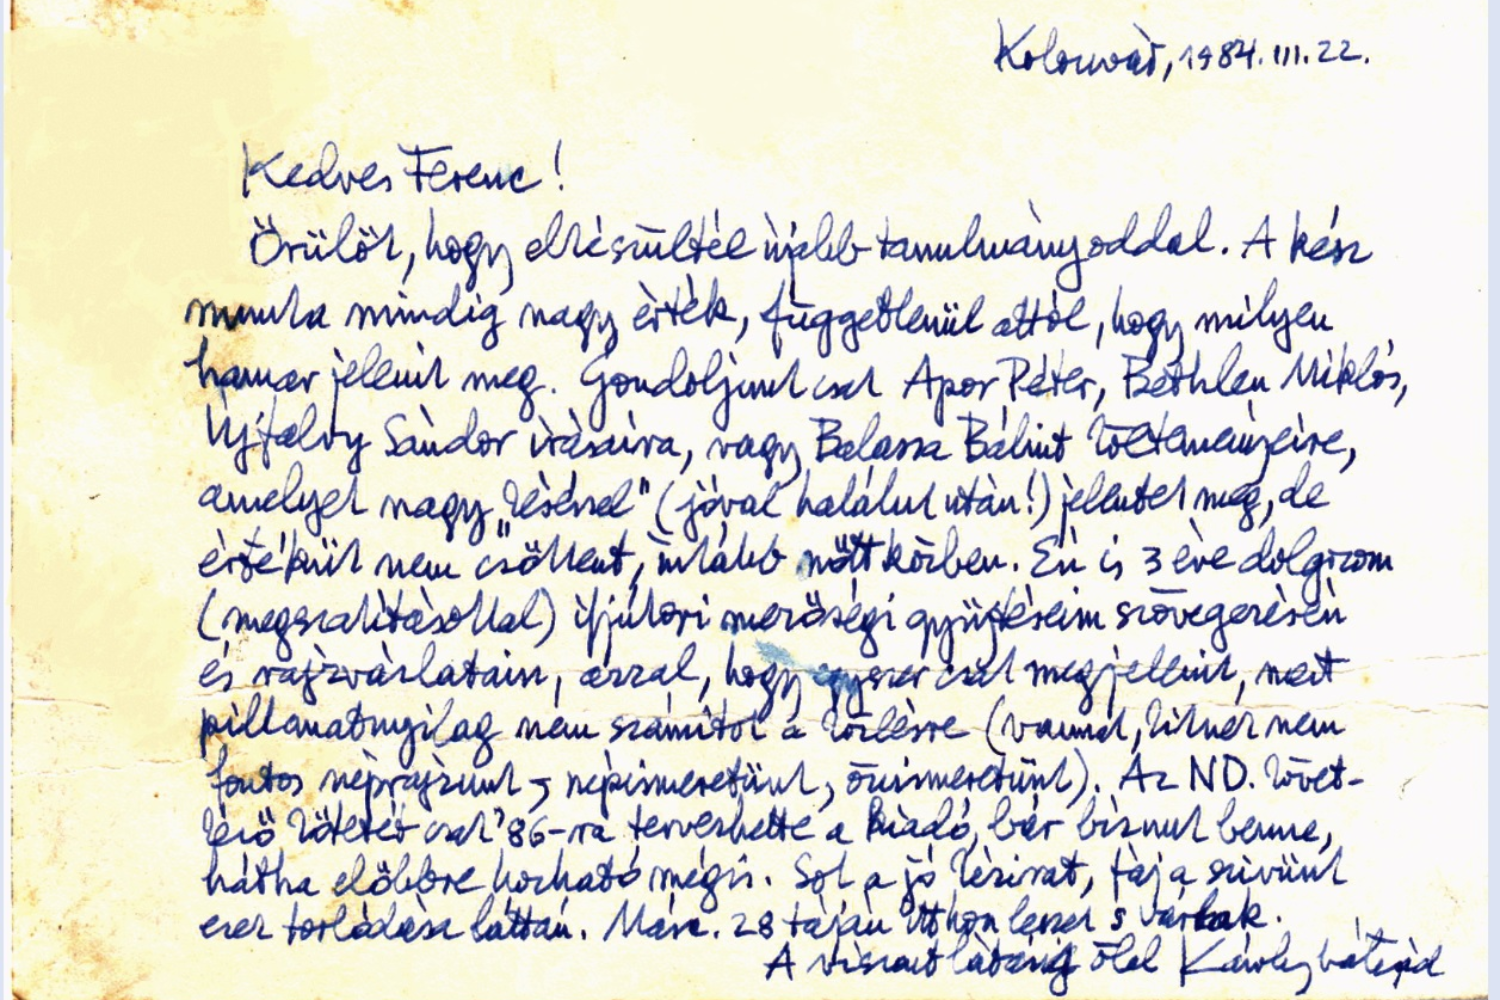 Kolozsvár, 1984. III. 22.
Kedves Ferenc!
Örülök, hogy elkészültél újabb tanulmányoddal. A kész
munka mindig nagy érték, függetlenül attól, hogy milyen
hamar jelenik meg. Gondoljunk csak Apor Péter, Bethlen Miklós,
Újfalvy Sándor írásaira, vagy Balassa Bálint költeményeire,
amelyek nagy „késéssel" (jóval haláluk után!) jelentek meg, de
értékük nem csökkent, inkább nőtt közben. Én is 3 éve dolgozom
(megszakításokkal) ifjúkori merőségi gyűjtéseim szövegezésén
és rajzvázlatain, azzal, hogy egyszer csak megjelenik, mert
pillanatnyilag nem számítok a közlésre (vannak, kiknek nem
fontos néprajzunk, népismeretünk, önismeretünk). Az ND. követ-
kező kötetét csak '86-ra tervezhette a Kiadó, bár bíznuk benne,
hátha előbbre hozható mégis. Sok a jó kézirat, fáj a szívünk
ezek torlódása láttán. Márc. 28 táján itthon leszek s várlak.
A viszontlátásig ölel Károly bátyád